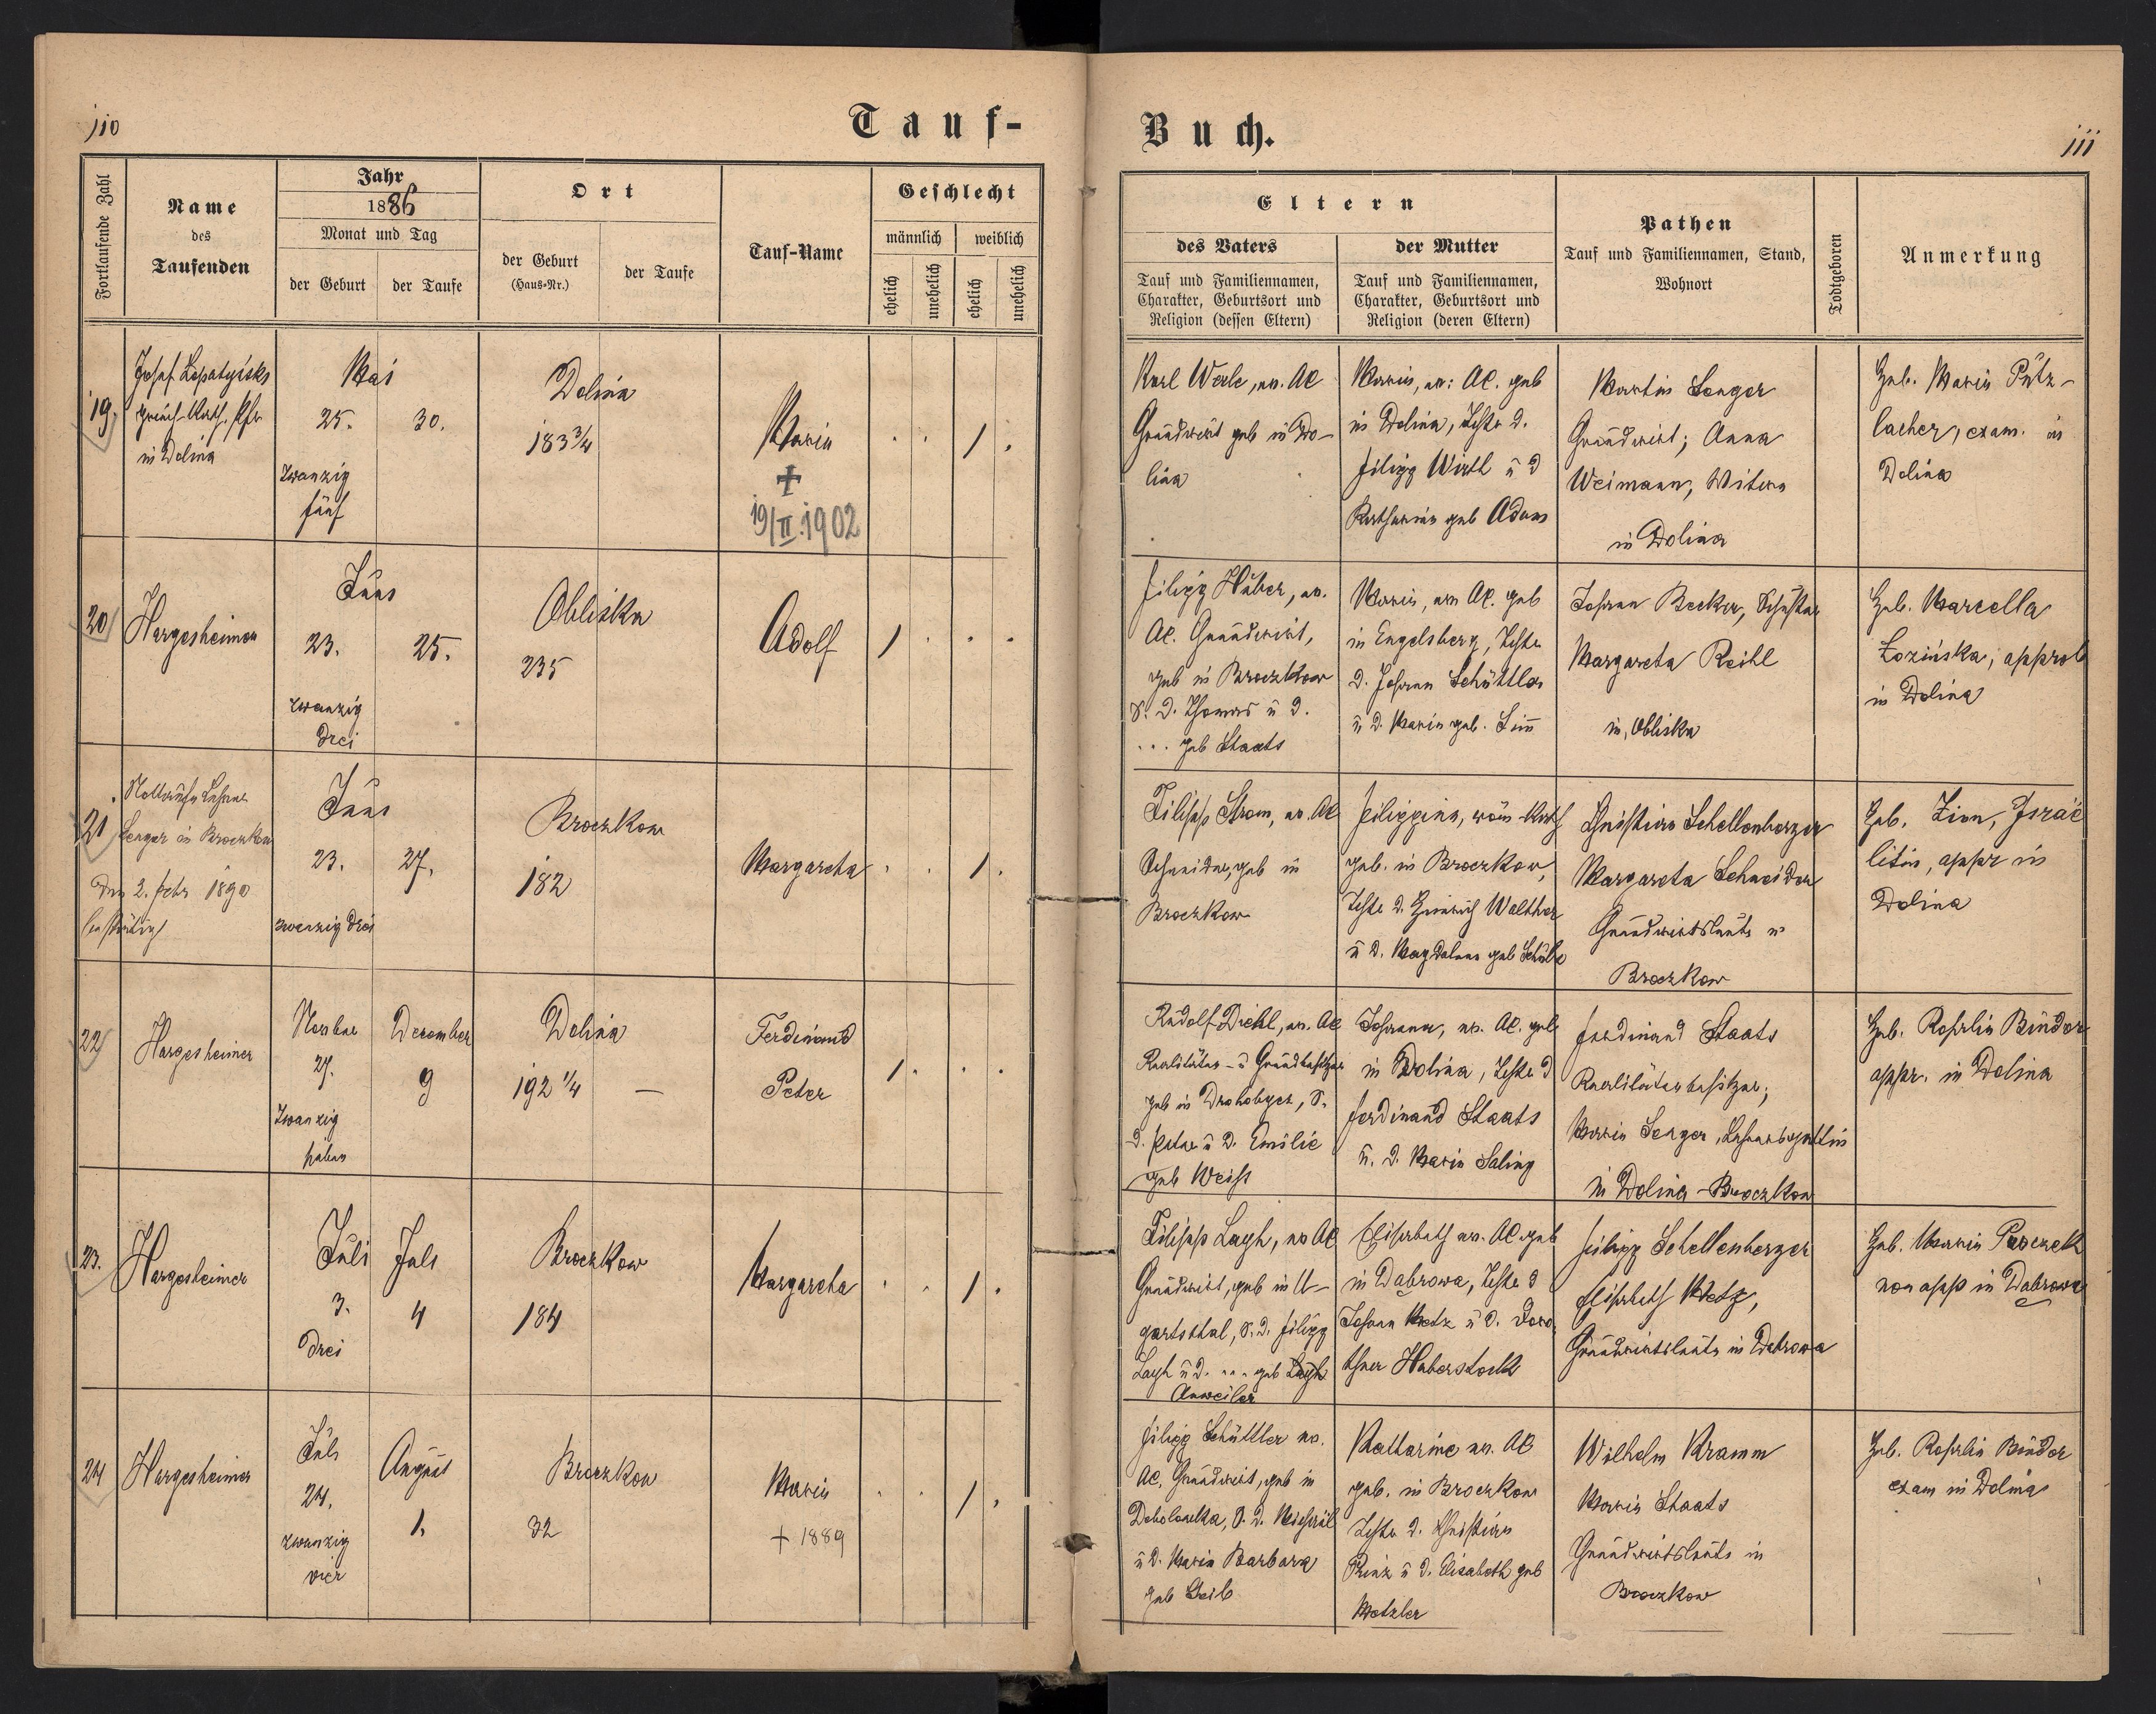 110
Tauf-
Fortlaufende Zahl
Name
des
Taufenden
Jahr
1886
Monat und Tag
der Geburt
der Taufe
Ort
der Geburt
(Haus-Nr.)
der Taufe
Tauf-Name
Geschlecht
männlich
weiblich
ehelich
unehelich
ehelich
unehelich
19
Josef
in Dolina
Mai
25.
30.
zwanzig
fünf
Dolina
183 3/4
Maria
+
19/II.1902
20
Hargesheimer
Juni
23.
25.
zwanzig
drei
Obliska
235
Adolf
21
Senger in Broczkow
2. Febr 1890
Juni
23.
27.
zwanzig drei
Broczkow
182
Margaretha
22
Hargesheimer
27.
zwanzig
sieben
December
9
Dolina
192 1/4
—
Ferdinand
Peter
23.
Hargesheimer
Juli
3.
drei
Juli
4
Broczkow
184
Margaretha
24
Hargesheimer
Juli
24.
zwanzig
vier
August
1.
Broczkow
32
Maria
+ 1889
Buch.
111
Eltern
des Vaters
Tauf und Familiennamen,
Charakter, Geburtsort und
Religion (dessen Eltern)
der Mutter
Tauf und Familiennamen,
Charakter, Geburtsort und
Religion (deren Eltern)
Pathen
Tauf und Familiennamen, Stand,
Wohnort
Todtgeboren
Anmerkung
Karl Werle, ev. AC
Grundwirt geb in Do-
lina
Maria, ev: AC. geb
in Dolina, Tochter d.
Filipp Wirtl u d
Katharina geb Adam
Martin Senger
Grundwirt; Anna
Weimann, Witwe
in Dolina
Heb. Maria Pütz-
lacher, exam. in
Dolina
Filipp Huber, ev.
AC. Grundwirt,
geb in Broczkow
S. d. Thomas u d.
... geb Staats
Maria, ev. AC. geb
in Engelsberg, Tochter
d. Johann Schüttler
u d. Maria geb.
Johann Becker,
Margareta Reihl
in Obliska
Heb. Marcella
Łozińska, approb
in Dolina
Filipp Strom, ev. AC
Schneider, geb in
Broczkow
Filippina, röm-kath
geb. in Broczkow,
Tochter d. Heinrich Walther
u d. Magdalena geb
Christian Schellenberger
Margareta Schneider
Grundwirtsleute in
Broczkow
Heb. Zion, Israe
litin, appr in
Dolina
Rudolf Diehl, ev. AC
Realitäten- u Grundbesitzer
geb in Drohobycz, S.
d. Peter u d. Emilie
geb Weiss
Johanna, ev. AC. geb
in Dolina, Tochter d
Ferdinand Staats
u. d. Maria Saling
Ferdinand Staats
Realitätenbesitzer;
Maria Senger, Lehrersgattin
in Dolina-Broczkow
Heb. Rosalia Binder
appr. in Dolina
Filipp Lagh, ev AC
Grundwirt, geb in U-
gartsthal, S. d. Filipp
Lagh u d. ... geb Lagh
Anweiler
Elisabeth ev. AC. geb
in Dabrowa, Tochter d
Johann Metz u d. Doro
thea Haberstock
Filipp Schellenberger
Elisabeth Metz,
Grundwirtsleute in Dabrowa
Heb. Maria
non app in Dabrowa
Filipp Schüttler ev.
AC, Grundwirt, geb in
Debolowka, S. d. Michael
u d. Maria Barbara
geb Geib
Katharine ev. AC
geb. in Broczkow
Tochter d. Christian
Prinz u d. Elisabeth geb
Metzler
Wilhelm Kramm
Maria Staats
Grundwirtsleute in
Broczkow
Heb. Rosalia Binder
exam in Dolina